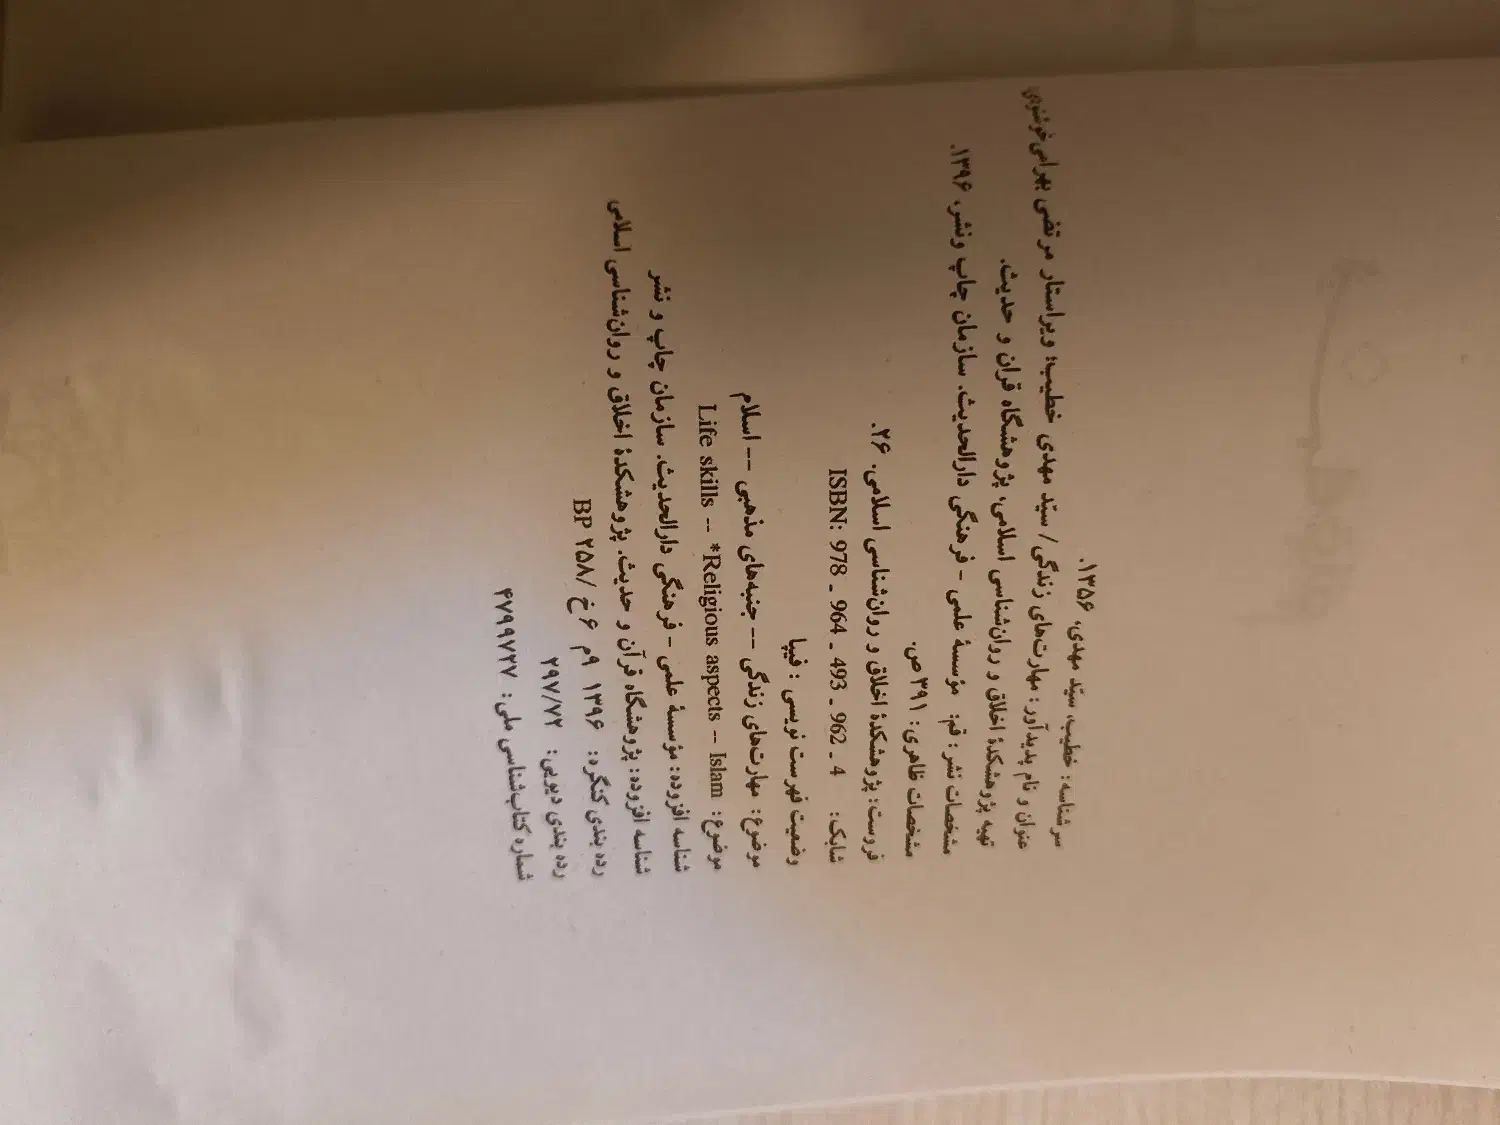 سرشناسه: خطیب، سیّد مهدی، ۱۳۵۶.
عنوان و نام پدیدآور: مهارت‌های زندگی / سیّد مهدی خطیب؛ ویراستار مرتضی بهرامی‌خوشنودی
تهیه پژوهشکدهٔ اخلاق و روان‌شناسی اسلامی، پژوهشگاه قرآن و حدیث.
مشخصات نشر: قم: مؤسسهٔ علمی - فرهنگی دارالحدیث، سازمان چاپ ونشر، ۱۳۹۶.
مشخصات ظاهری: ۳۹۱ ص.
فروست: پژوهشکدهٔ اخلاق و روان‌شناسی اسلامی، ۲۶.
شابک: ISBN: 978 - 964 - 493 - 962 - 4
وضعیت فهرست نویسی: فیپا
موضوع: مهارت‌های زندگی -- جنبه‌های مذهبی -- اسلام
موضوع: Life skills -- *Religious aspects -- Islam
شناسه افزوده: مؤسسهٔ علمی - فرهنگی دارالحدیث. سازمان چاپ و نشر
شناسه افزوده: پژوهشگاه قرآن و حدیث. پژوهشکدهٔ اخلاق و روان‌شناسی اسلامی
رده بندی کنگره: ۱۳۹۶ ۹م ۶خ/ BP ۲۵۸
رده بندی دیویی: ۲۹۷/۷۲
شماره کتاب‌شناسی ملی: ۴۷۹۹۷۲۷